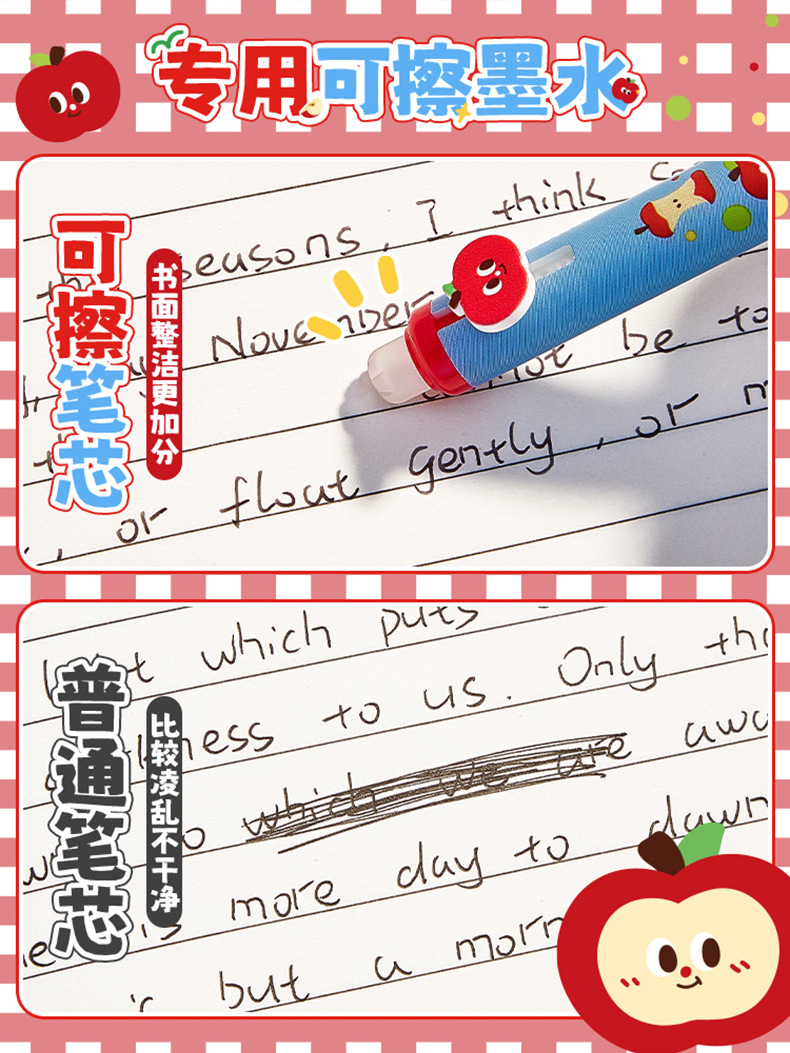 专用可擦墨水
可擦笔芯
书面整洁更加分
seasons, I think
November
not be to
or float gently, or
普通笔芯
比较凌乱不干净
which puts
ness to us. Only
which we are
more day to dawn
is but a morn